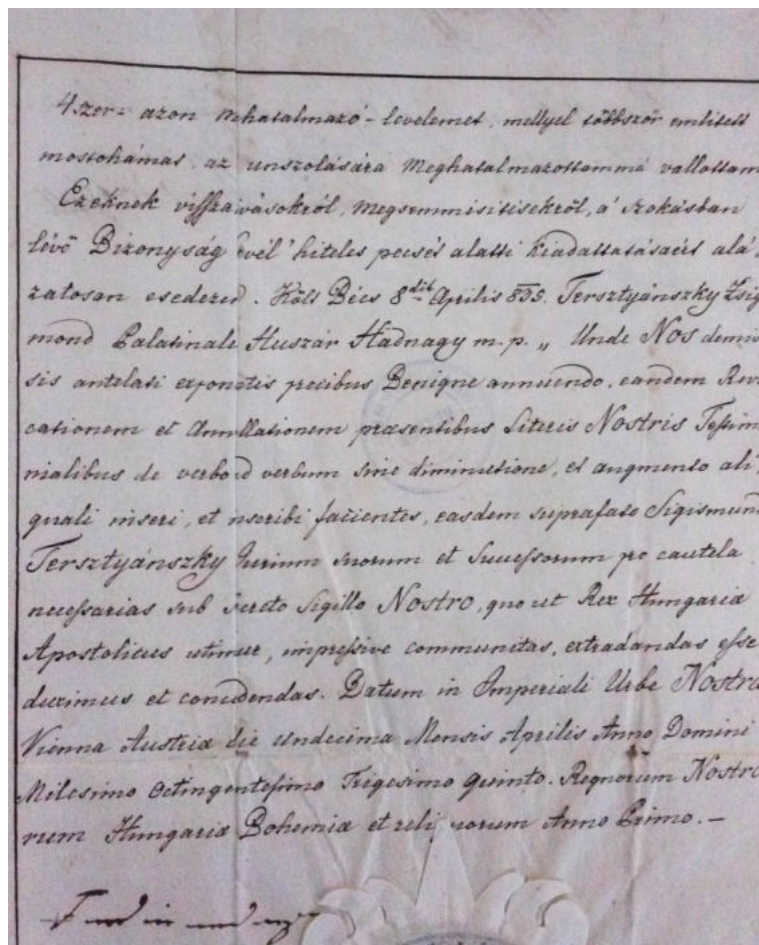 4szer= azon mhatalmazó-levelemet, mellyel többször említett
mostohámat, az unszolására Meghatalmazottammá vallottam
Ezeknek visszavásokról, megsemmisitisekről, a' szokásban
lévő Bizonyság levél' hiteles pecsét alatti kiadattatásaért alá,
zatosan esedezed. Költ Bécs 8dik Aprilis 835. Tersztyánszky Zsig
mond Palatinale Huszár Hadnagy m.p. „ Unde Nos demis
sis antelati exponetis precibus Benigne annuendo, eandem Revo
cationem et Annullationem præsentibus Literis Nostris Testim
nialibus de verbo ad verbum sine diminutione, et augmento ali,
quali inseri, et inscribi facientes, easdem suprafato Sigismund
Tersztyánszky Jurium suorum et Successorum pro cautela
necessarias sub Secreto Sigillo Nostro, quo ut Rex Hungariæ
Apostolicus utimur, impressive communitas, extradandas esse
duximus et concedendas. Datum in Imperiali Urbe Nostra
Vienna Austriæ die undecima Mensis Aprilis Anno Domini
Milesimo Octingentesimo Trigesimo quinto. Regnorum Nostro
rum Hungariæ Bohemiæ et reliquorum Anno Primo.—
Ferdinandus